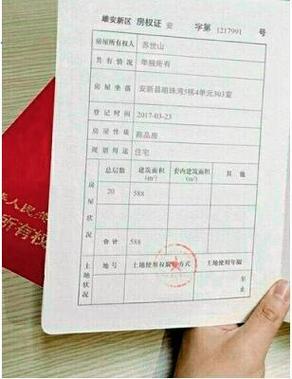 雄安新区 房权证 安 字第1217991号
房屋所有权人 苏世山
共有情况 单独所有
房屋坐落 安新县明珠湾5栋4单元303室
登记时间 2017-03-23
房屋性质 商品房
规划用途 住宅
房屋状况 总层数 建筑面积(m²) 套内建筑面积(m²) 其他
20 588
合计 588
土地状况 地号 土地使用权取得方式 土地使用年限
年
止
人民
所有权